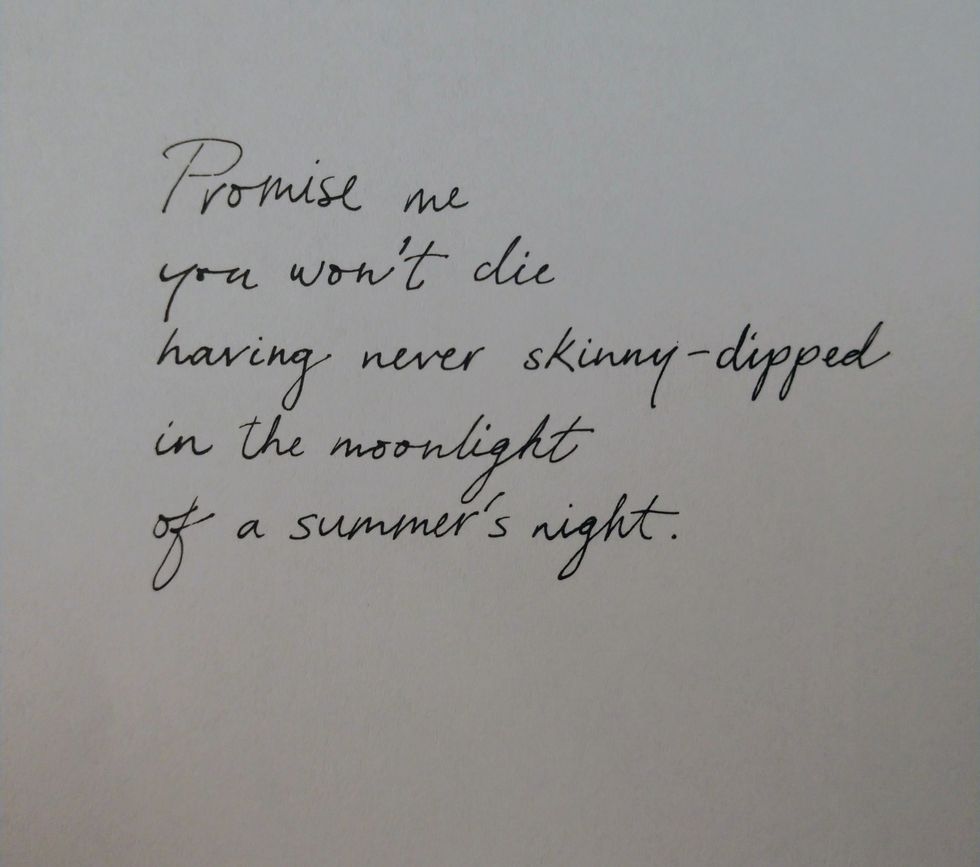 Promise me
you won't die
having never skinny-dipped
in the moonlight
of a summer's night.